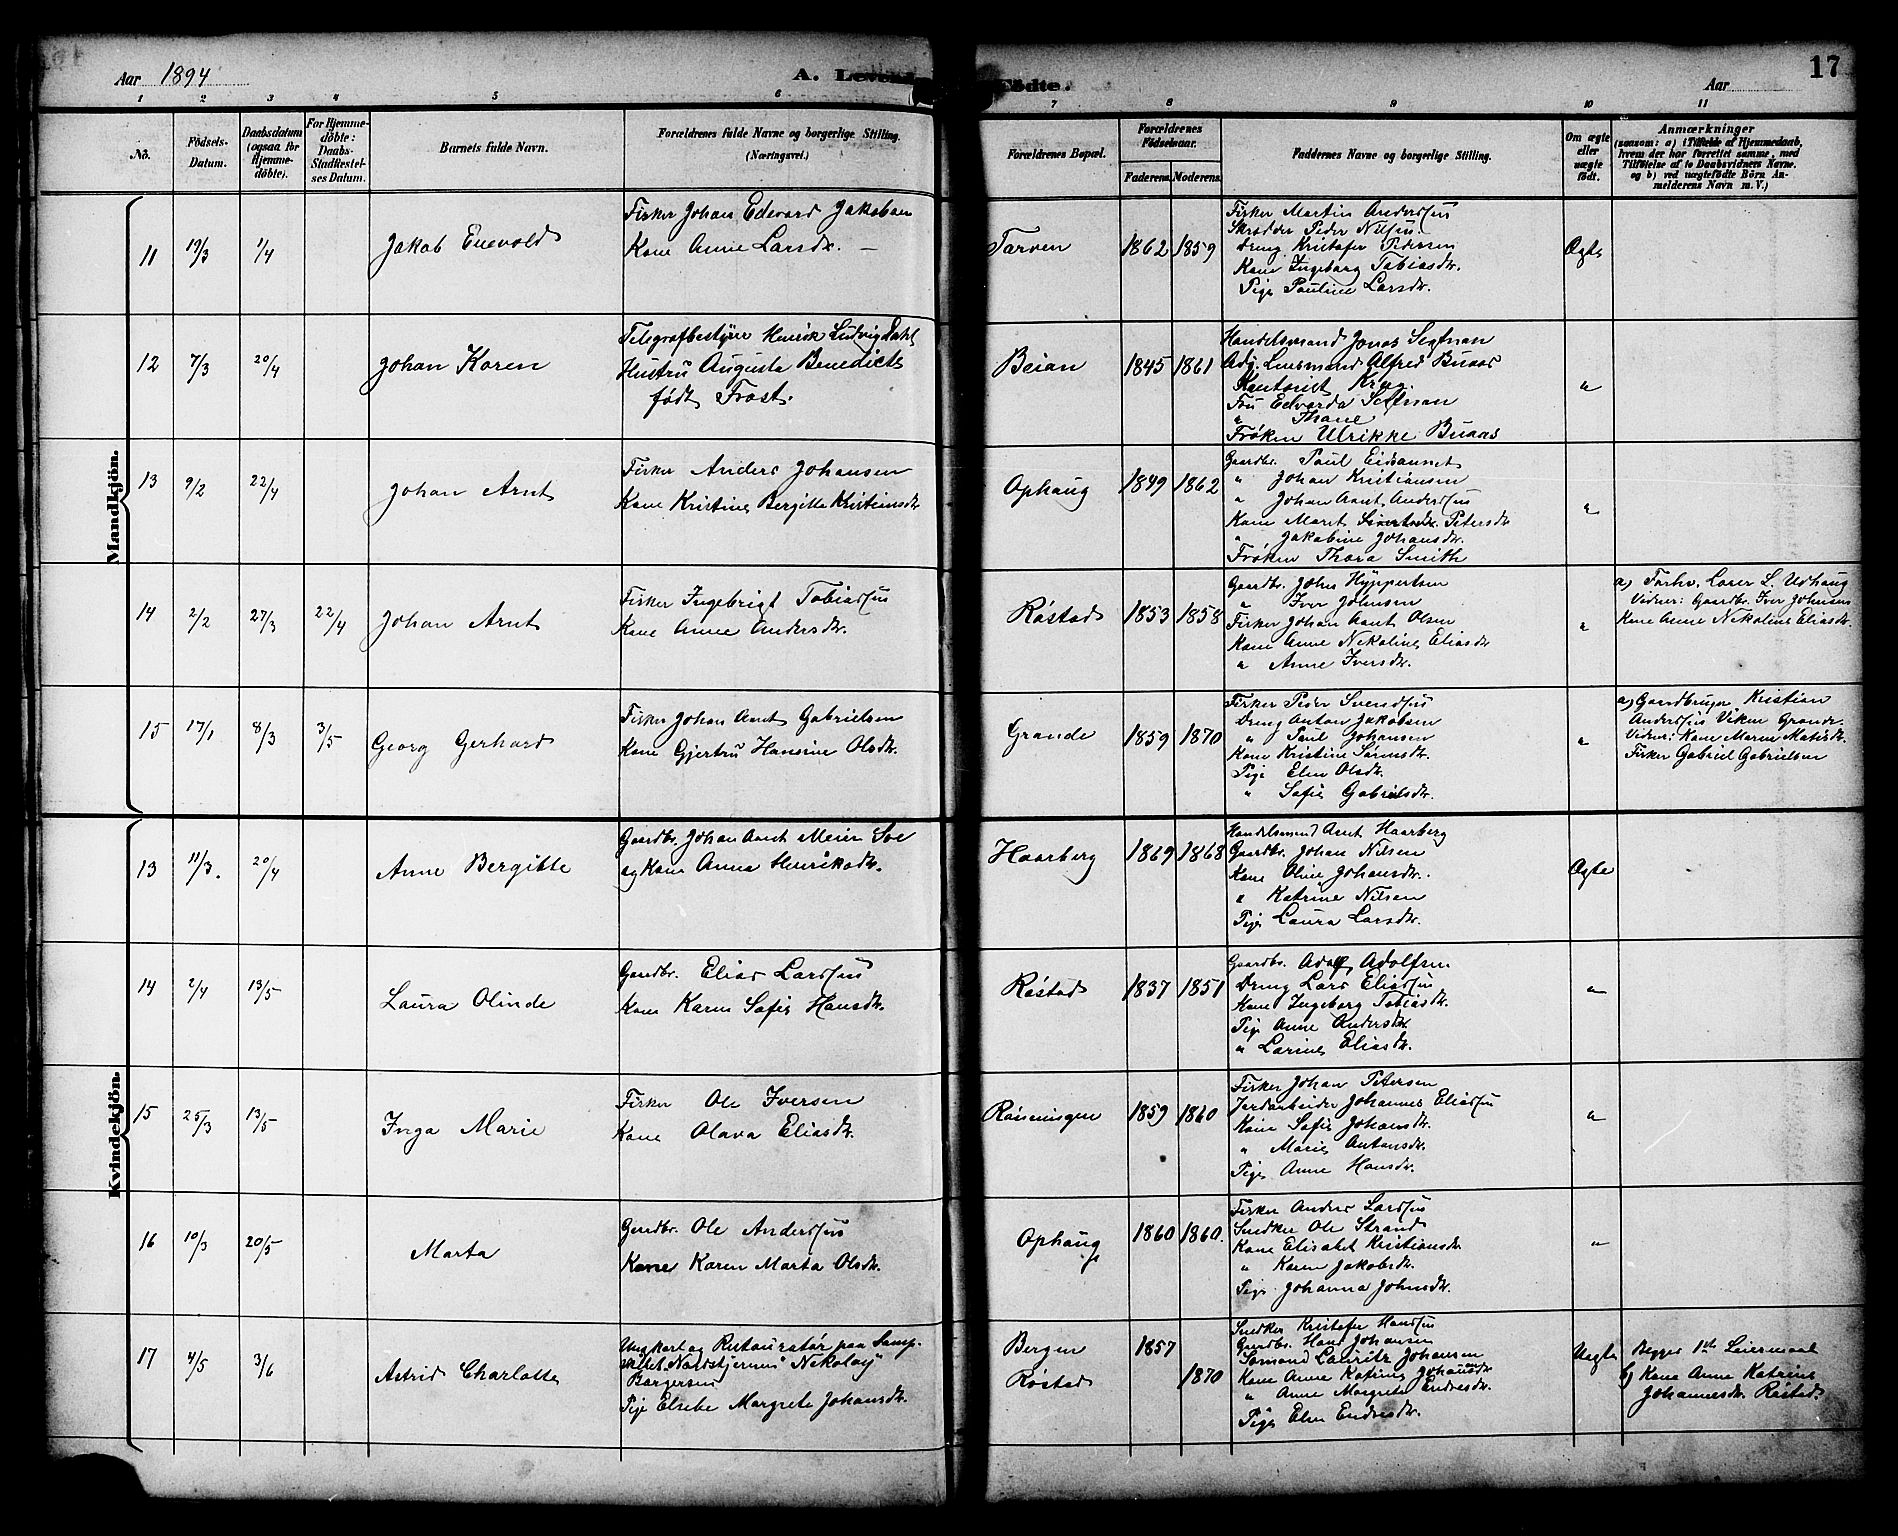 Aar 1894
A. Levende
Fødte.
Aar
17
1 2 3 4 5 6 7 8 9 10 11
No.
Fødsels-
Datum.
Daabsdatum
(ogsaa for
Hjemme-
døbte).
For Hjemme-
døbte:
Daabs-
Stadfæstel-
ses Datum.
Barnets fulde Navn.
Forældrenes fulde Navne og borgerlige Stilling.
(Næringsvei.)
Forældrenes Bopæl.
Forældrenes
Fødselsaar.
Faderens.
Moderens.
Faddernes Navne og borgerlige Stilling.
Om ægte
eller
uægte
født.
Anmærkninger
(saasom: a) i Tilfælde af Hjemmedaab,
hvem der har forrettet samme, med
Tilføielse af to Daabsvidners Navne.
og b) ved uægtefødte Børn An-
melderens Navn m. V.)
Mandkjön.
11
19/3
1/4
Jakob Enevold
Fisker Johan Edevard Jakobsen
Kone Anne Larsdtr. —
Tarven
1862
1859
Fisker Martin Anderssen
Skrædder Peder Nilsen.
Dreng Kristofer Pedersen
Kone Ingeborg Tobiasdtr.
Pige Pauline Larsdtr.
Ægte
12
7/3
20/4
Johan Koren
Telegrafbestyrer Henrik Ludvig Dahl
Hustru Augusta Benedicte
født Frost.
Beian
1845
1861
Handelsmand Jonas Sejtnan
Adj. Lensmand Alfred Buaas
Kontorist Krag.
Fru Edvarda Sejtnan
" Thane
Frøken Ulrikke Buaas
"
13
9/2
22/4
Johan Arnt
Fisker Anders Johansen
Kone Kristine Bergitte Kristiansdtr
Ophaug
1849
1862
Gaardbr. Paul Eidsaunet
" Johan Kristiansen
" Johan Arnt Anderssen
Kone Maret Sivertsdtr. Petersdtr
" Jakobine Johansdtr.
Frøken Thora Smith
"
14
2/2
27/3
22/4
Johan Arnt
Fisker Ingebrigt Tobiassen
Kone Anne Andersdtr.
Røstad
1853
1858
Gaardbr. Johs Hyppertsen
" Iver Johnsen
Fisker Johan Arnt Olsen
Kone Anne Nikoline Eliasdtr
" Anne Iversdtr.
"
a) Forhv. Lærer L. Udhaug
Vidner: Gaardbr. Iver Johnsen
Kone Anne Nikoline Eliasdtr.
15
17/1
8/3
3/5
Georg Gerhard
Fisker Johan Arnt Gabrielsen
Kone Gjertru Hansine Olsdtr.
Grande
1859
1870
Fisker Peder Svendsen
Dreng Anton Jakobsen
" Paul Johansen
Kone Kristine Sørensdtr.
Pige Elen Olsdtr.
" Sofie Gabrielsdtr.
"
a) Gaardbruger Kristian
Anderssen Viken Grande.
Vidner: Kone Maren Matisdtr.
Fisker Gabriel Gabrielsen
Kvindekjön.
13
11/3.
20/4
Anne Bergitte
Gaardbr. Johan Arnt Meier Soe
og Kone Anna Henrikadtr.
Haarberg
1869
1868
Handelsmand Arnt Haarberg
Gaardbr. Johan Nilsen
Kone Oline Johansdtr.
" Katrine Nilsen
Pige Laura Larsdtr.
Ægte
14
2/4
13/5
Laura Olinde
Gaardbr. Elias Larssen
Kone Karen Sofie Hansdtr.
Røstad
1837
1851
Gaardbr. Adolf Adolfsen
Dreng Lars Eliassen
Kone Ingeborg Tobiasdtr.
Pige Anne Andersdtr.
" Larine Eliasdtr.
"
15
25/3
13/5
Inga Marie
Fisker Ole Iversen
Kone Olava Eliasdtr.
Rønningen
1859
1860
Fisker Johan Petersen
Jordarbeider Johannes Eliassen
Kone Sofie Johansdtr.
" Marie Antonsdtr.
Pige Anne Hansdtr.
"
16
10/3
20/5
Marta
Gaardbr. Ole Anderssen
Kone Karen Marta Olsdtr.
Ophaug
1860
1860.
Fisker Anders Larssen
Snedker Ole Strand
Kone Elisabet Kristiansdtr
" Karen Jakobsdtr.
Pige Johanna Johnsdtr.
"
17
4/5
3/6
Astrid Charlotte
Ungkarl og Restauratør paa Damp-
skibet "Nordstjernen" Nikolay
Borgersen
Pige Elsebe Margrete Johansdtr.
Bergen
Røstad
1857
1870
Snedker Kristofer Hanssen
Gaardbr. Hans Johansen
Sømand Lauritz Johansen
Kone Anne Katrine Johansdtr
" Anne Margrete Endresdtr.
Pige Elen Endresdtr.
Uægte
Begges 1ste Leiermaal
b) Kone Anne Katrine
Johannesdtr. Røstad